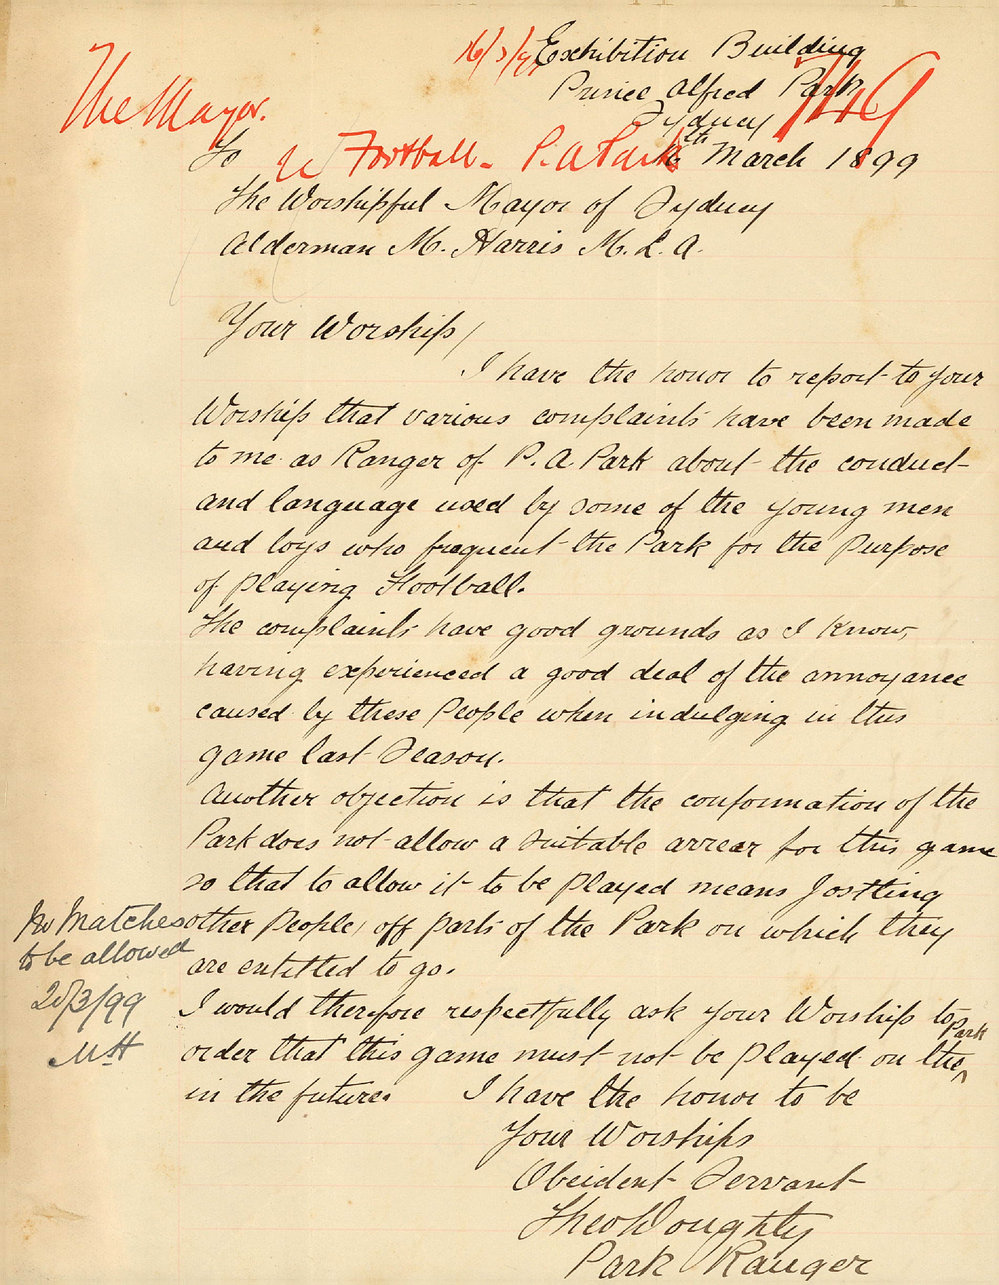 16/3/99 Exhibition Building
The Mayor.
Prince Alfred Park
749
Sydney
To
re Football - P. A Park
16th March 1899
The Worshipful Mayor of Sydney
Alderman M. Harris M. L. A.
Your Worship/
I have the honor to report to your
Worship that various complaints have been made
to me as Ranger of P. A Park about the conduct
and language used by some of the young men
and boys who frequent the Park for the Purpose
of playing Football.
The complaints have good grounds as I know,
having experienced a good deal of the annoyance
caused by these People when indulging in this
game last Season.
Another objection is that the conformation of the
Park does not allow a suitable arrear for this game
so that to allow it to be played means Jostling
other People, off parts of the Park on which they
are entitled to go.
I would therefore respectfully ask your Worship to
order that this game must not be played on the Park
in the future. I have the honor to be
Your Worships
Obeident Servant
Theo Doughty
Park Ranger
No Matches
to be allowed
20/3/99
MH